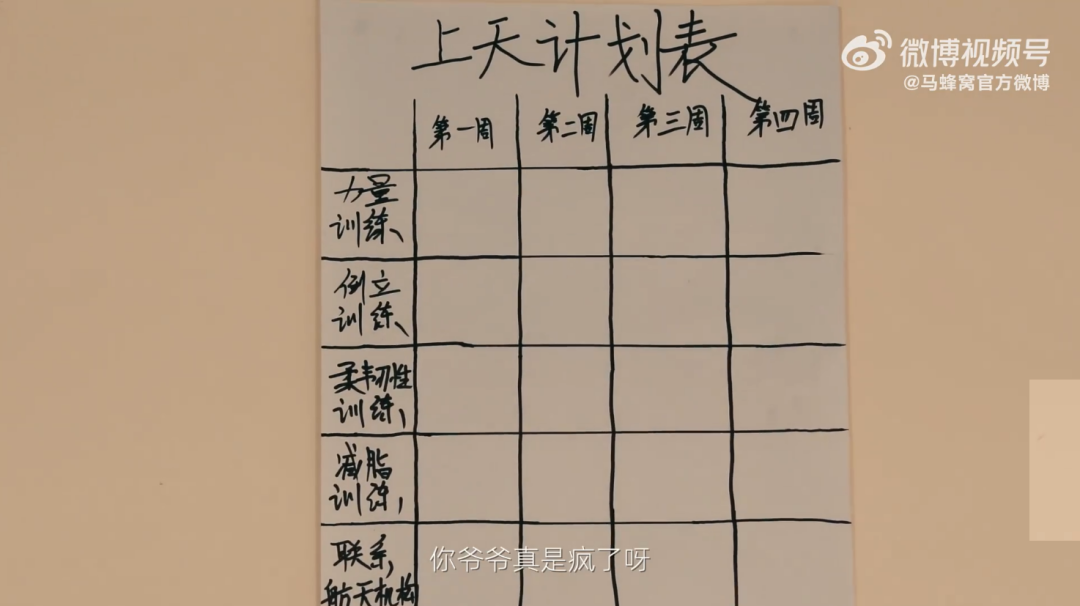 上天计划表
微博视频号
@马蜂窝官方微博
第一周 第二周 第三周 第四周
力量
训练
倒立
训练
柔韧性
训练
减脂
训练
联系
航天机构
你爷爷真是疯了呀